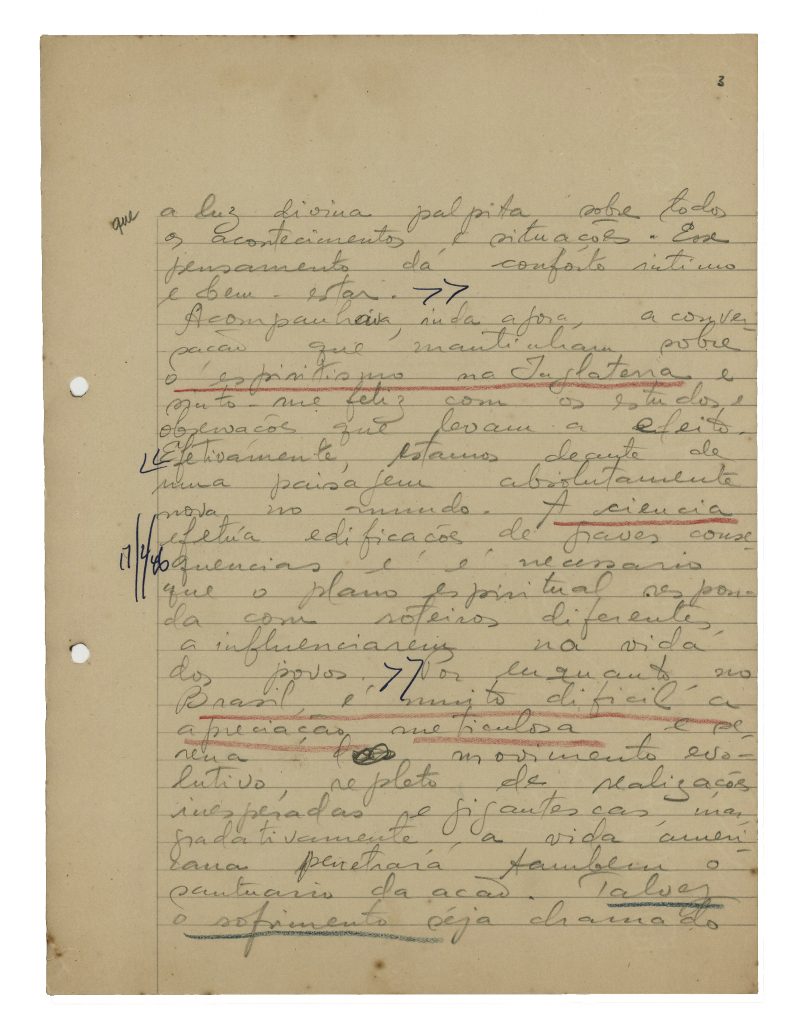 3
que a luz divina palpita sobre todos
os acontecimentos e situações. Esse
pensamento dá conforto intimo
e bem-estar. >>
Acompanhava, inda agora, a conver-
sação que mantinham sobre
o espiritismo na Inglaterra e
sinto-me feliz com os estudos e
observações que levam a efeito.
<< Efetivamente, estamos deante de
uma paisagem absolutamente
nova no mundo. A ciencia
efetúa edificações de graves conse-
17/4/46
quencias e é necessario
que o plano espiritual respon-
da com roteiros diferentes,
a influenciarem na vida
dos povos. >> Por enquanto no
Brasil, é muito dificil a
apreciação meticulosa e se-
rena do movimento evo-
lutivo, repleto de realizações
inesperadas e gigantescas, mas
gradativamente, a vida ameri-
cana penetrará tambem o
santuario da ação. Talvez
o sofrimento seja chamado